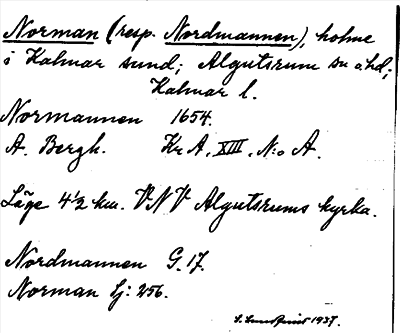 Norman (resp. Nordmannen), holme
i Kalmar sund; Algutsrum sn o. hd;
Kalmar l.
Normannen 1654.
A. Bergh. Kr A, XIII, N:o A.
Läge 4 1/2 km. VNV Algutsrums kyrka.
Nordmannen G. 17.
Norman Lj: 256.
S. Lundquist 1937.